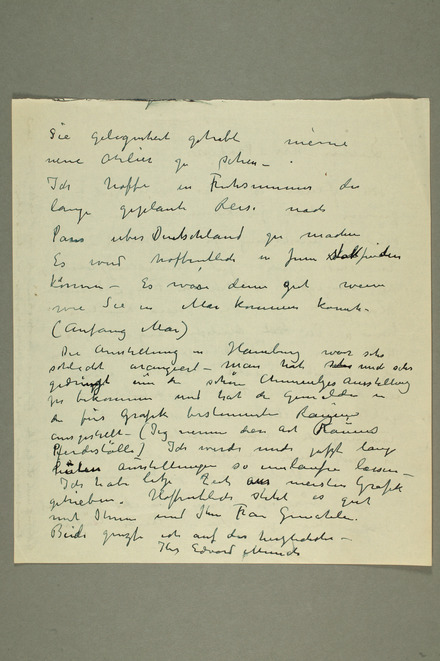 Sie Gelegenheit gehabt meine
neue Atelier zu sehen –
Ich hoffe im Frühsommer die
lange geplante Reise nach
Paris über Deutschland zu machen
Es wird hoffentlich in Juni stattfinden
können – Es wäre denn gut wenn
wie Sie in Mai kommen konnte
(Anfang Mai)
Die Ausstellung in Hamburg war sehr
schlecht arangiert – man hat mich sehr
gedrängt um die schöne Ausstellung
zu bekommen und hat die Gemälden in
die fürs Grafik bestemmten Räume
ausgestellt – (Ich nenne den art Räume
Pferdeställe) Ich werde nicht jetzt lange
Ausstellungen so umlaufen lassen –
Ich habe letzte Zeit am meisten Grafik
getrieben. Hoffentlich steht es gut
mit Ihnen und Ihr Frau Gemahlin.
Beide grüsse ich auf das herzlichste –
Ihr Edvard Munch